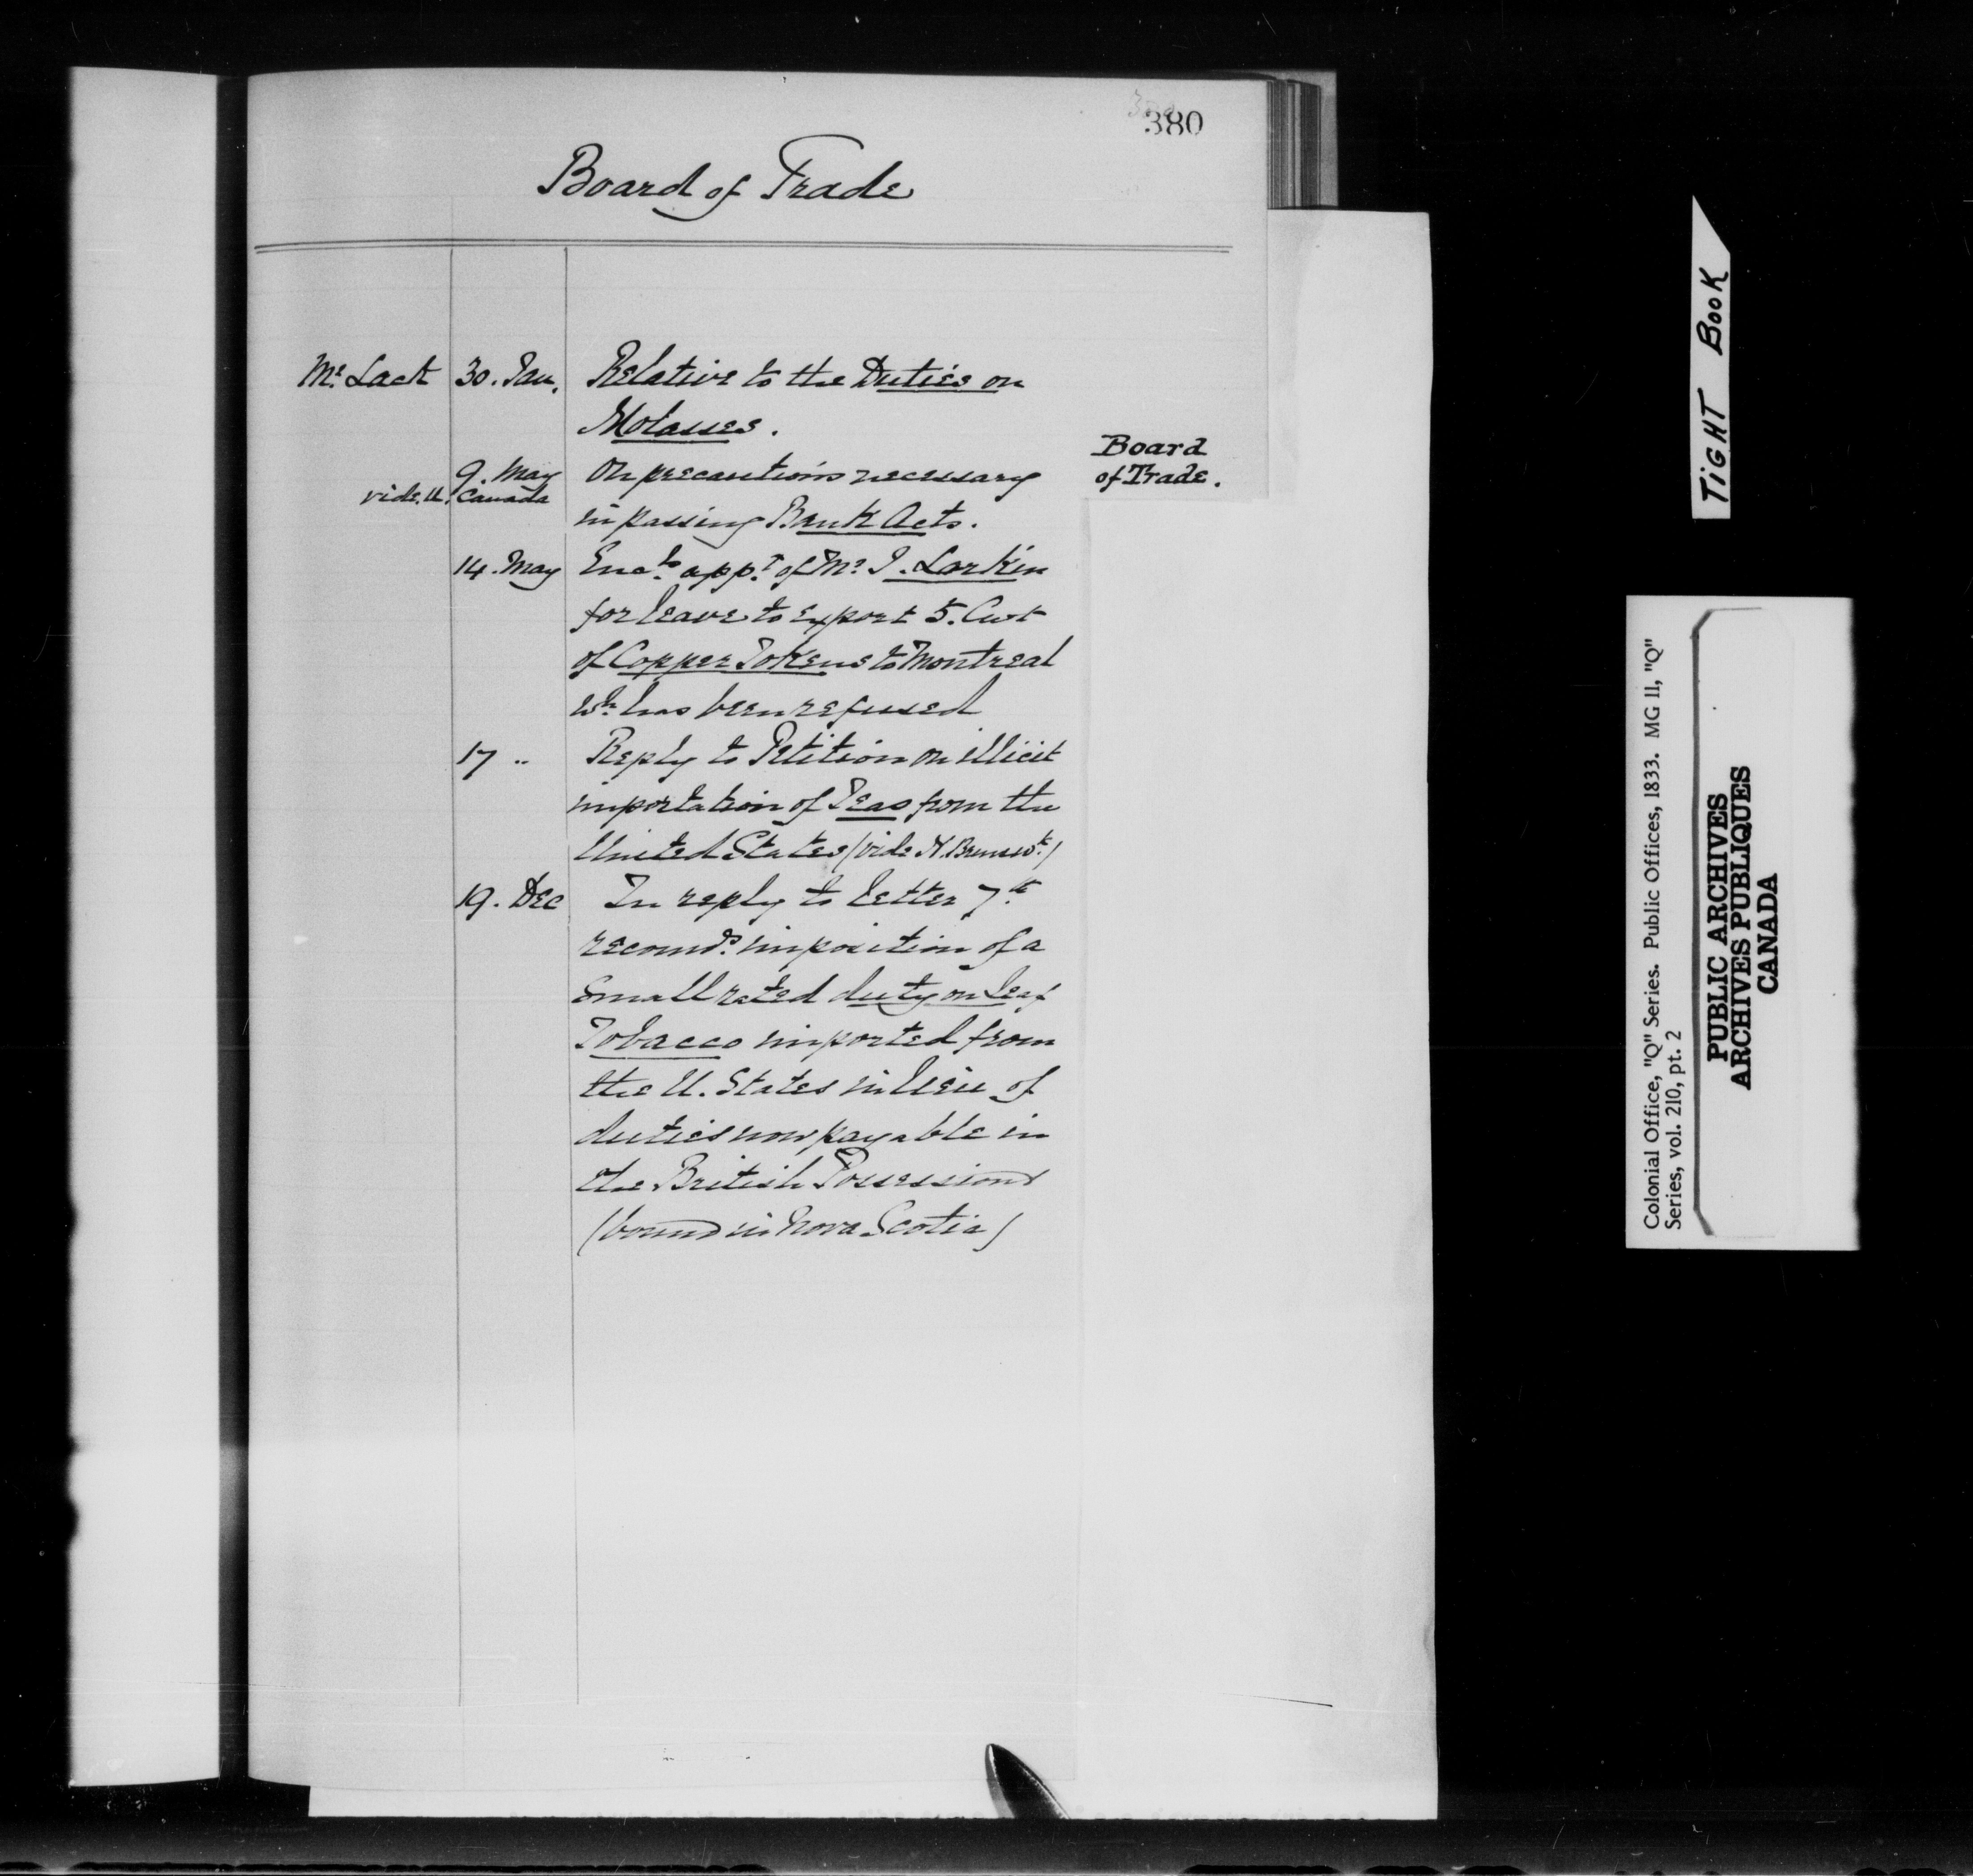 380
Board of Trade
Mr. Lack 30. Jan. Relative to the Duties on
Molasses.
Board
of Trade.
9. May On precautions necessary
vide. U. Canada
in passing Bank Acts.
14. May Encls. appt. of Mr. J. Larkin
for leave to export 5. Cwt
of Copper Tokens to Montreal
wh. has been refused
17 " Reply to Petition on illicit
importation of Teas from the
United States (vide N. Brunswk.)
19. Dec In reply to letter 7th
recomds. imposition of a
small rated duty on leaf
Tobacco imported from
the U. States in lieu of
duties now payable in
the British Possessions
(bound in Nova Scotia)
TIGHT BOOK
Colonial Office, "Q" Series. Public Offices, 1833. MG 11, "Q"
Series, vol. 210, pt. 2
PUBLIC ARCHIVES
ARCHIVES PUBLIQUES
CANADA